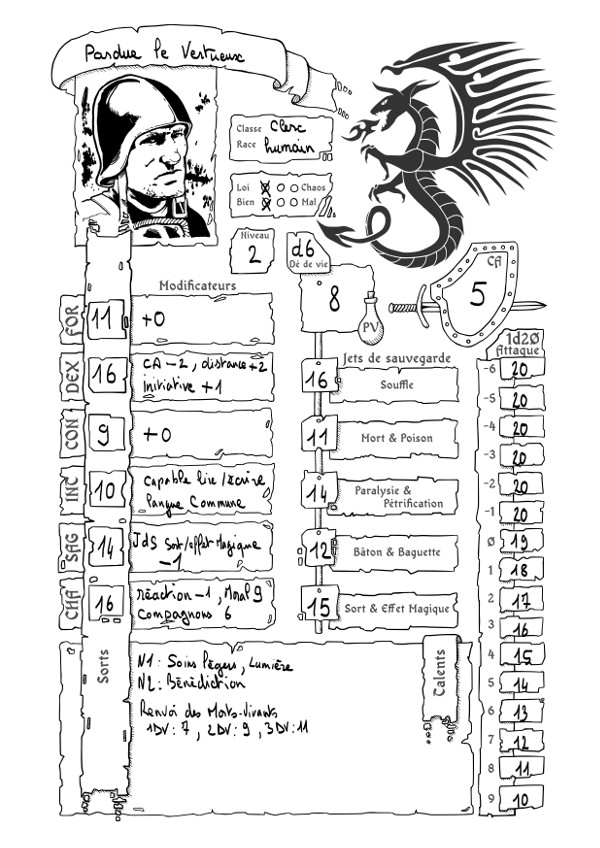 Pardue le Vertueux
Classe Clerc
Race humain
Loi Chaos
Bien Mal
Niveau
2
d6
Dé de vie
8
PV
CA
5
Modificateurs
FOR 11 +0
DEX 16 CA -2, distance +2
initiative +1
CON 9 +0
INC 10 capable lire/écrire
langue Commune
SAG 14 JdS Sort/effet Magique
-1
CHA 16 réaction -1, Moral 9
Compagnons 6
Jets de sauvegarde
16 Souffle
11 Mort & Poison
14 Paralysie &
Pétrification
12 Bâton & Baguette
15 Sort & Effet Magique
1d20
Attaque
-6 20
-5 20
-4 20
-3 20
-2 20
-1 20
0 19
1 18
2 17
3 16
4 15
5 14
6 13
7 12
8 11
9 10
Sorts
N1: Soins légers, Lumière
N2: Bénédiction
Renvoi des Morts-Vivants
1DV: 7, 2DV: 9, 3DV: 11
Talents